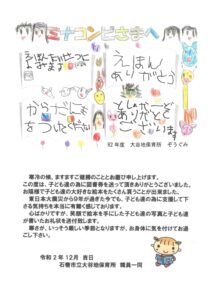 ミナコンピさまへ
えほん
ありがとう
からだにきを
つけてくださいね
ありがとう
ございます
R2年度 大谷地保育所 ぞうぐみ
寒冷の候、ますますご健勝のこととお慶び申し上げます。
この度は、子ども達の為に図書券を送って頂きありがとうございました。
お陰様で子ども達の大好きな絵本をたくさん買うことが出来ました。
東日本大震災から9年が過ぎた今でも、子ども達の為に支援して下
さる気持ちを本当に有難く感じております。
心ばかりですが、笑顔で絵本を手にした子ども達の写真と子ども達
が書いたお礼状を送付致します。
寒さが、いっそう厳しい季節となりますが、お身体に気を付けてお過
ごし下さい。
令和2年12月 吉日
石巻市立大谷地保育所 職員一同